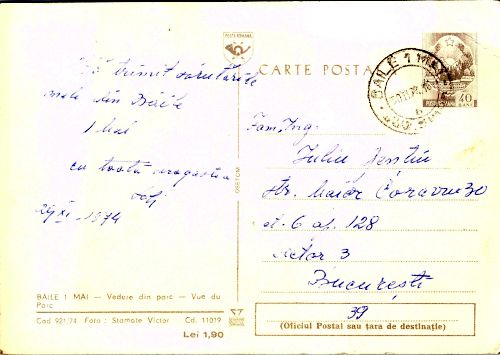 POSTA ROMANA
CARTE POSTALA
BAILE 1 MAI
POSTA ROMANA
40
BANI
Vă trimit sărutările
mele din Băile
1 Mai
cu toată dragostea
29 XI 1974
Fam. Ing.
Iuliu
Str. Maior Coravu 30
et. 6 ap. 128
Sector 3
București
39
(Oficiul Postal sau țara de destinație)
BĂILE 1 MAI — Vedere din parc — Vue du
Parc
Cod 921/74 Foto : Stamate Victor Cd. 11019
Lei 1,90